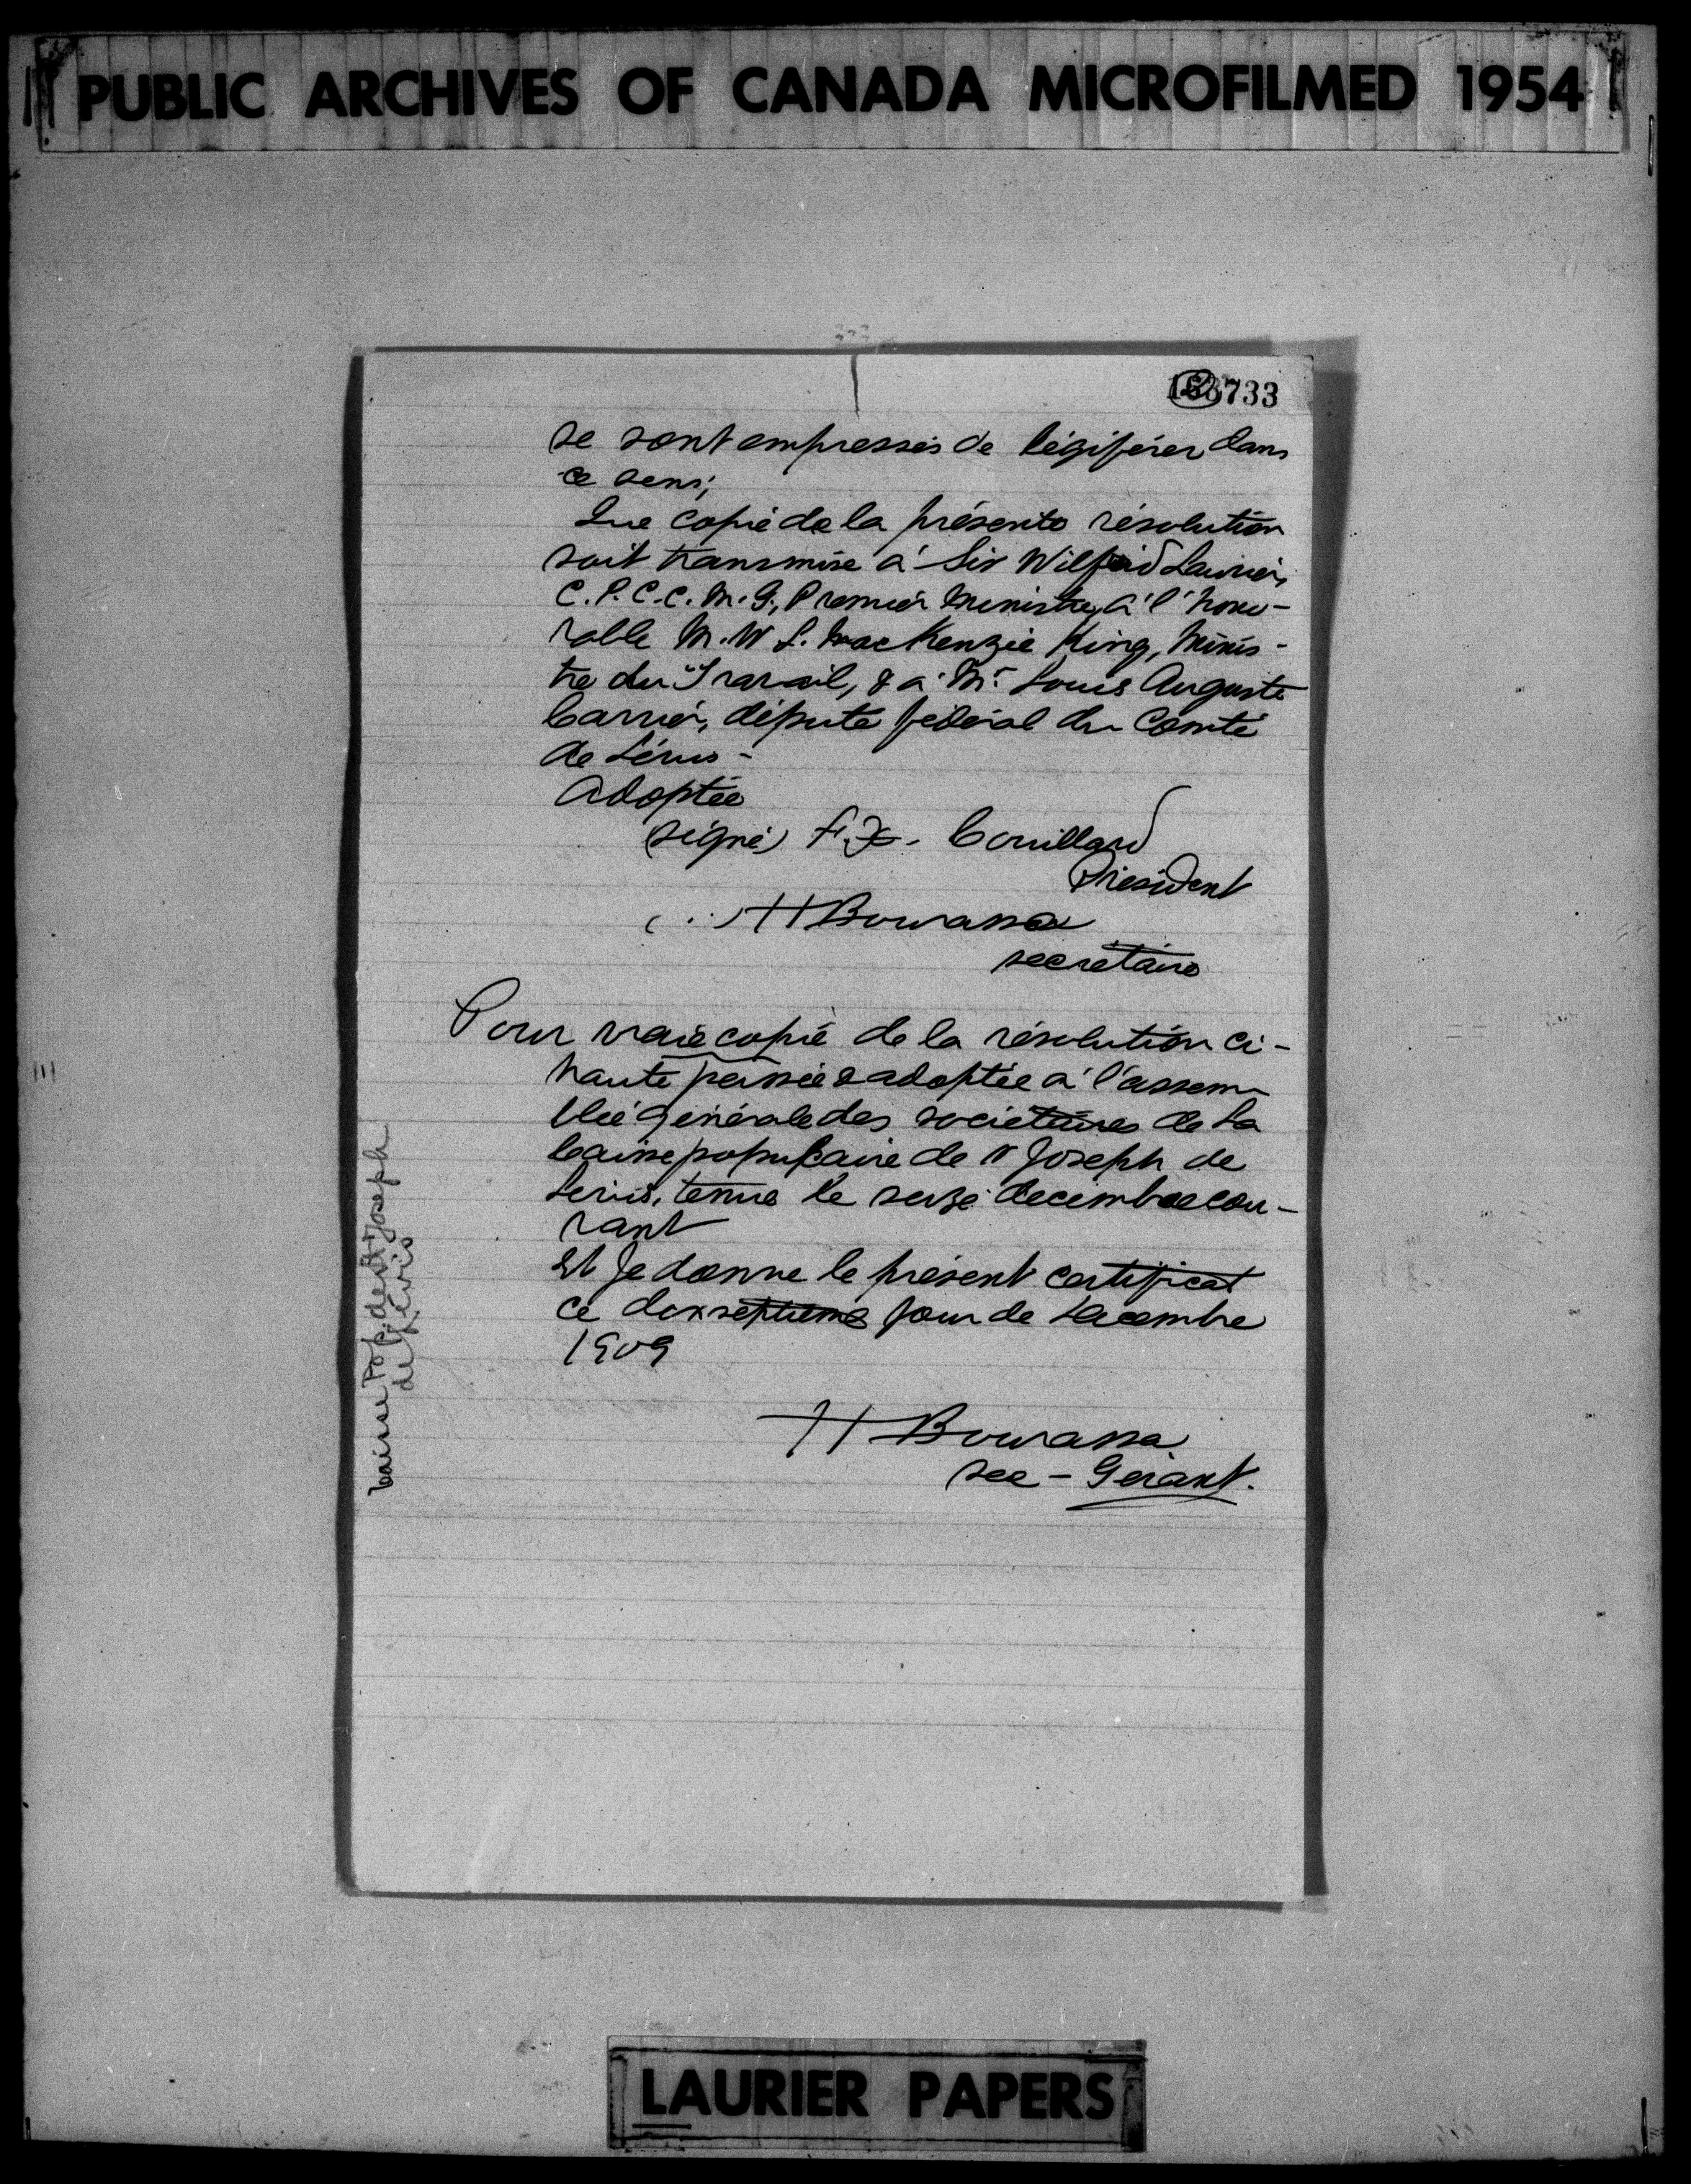 PUBLIC ARCHIVES OF CANADA MICROFILMED 1954
733
se sont empressés de légiférer dans
ce sens;
Que copie de la présente résolution
soit transmise à Sir Wilfrid Laurier,
C.P.C.C.M.G., Premier Ministre, à l'hono-
rable M.W L. MacKenzie King, Minis-
tre du Travail, & à Mr Louis Auguste
Carrier, député fédéral du Comté
de Lévis -
Adoptée
(signé) F.X. Couillard
Président
( " ) H Bourassa
secrétaire
Pour vraie copie de la résolution ci-
haute passée & adoptée à l'assem-
blée générale des sociétaires de La
Caisse populaire de St Joseph de
Lévis, tenue le seize décembre cou-
rant
Et Je donne le présent certificat
ce dix septième jour de Décembre
1909
H Bourassa
sec - Gérant.
Caisse Pop. de St Joseph
de Lévis
LAURIER PAPERS